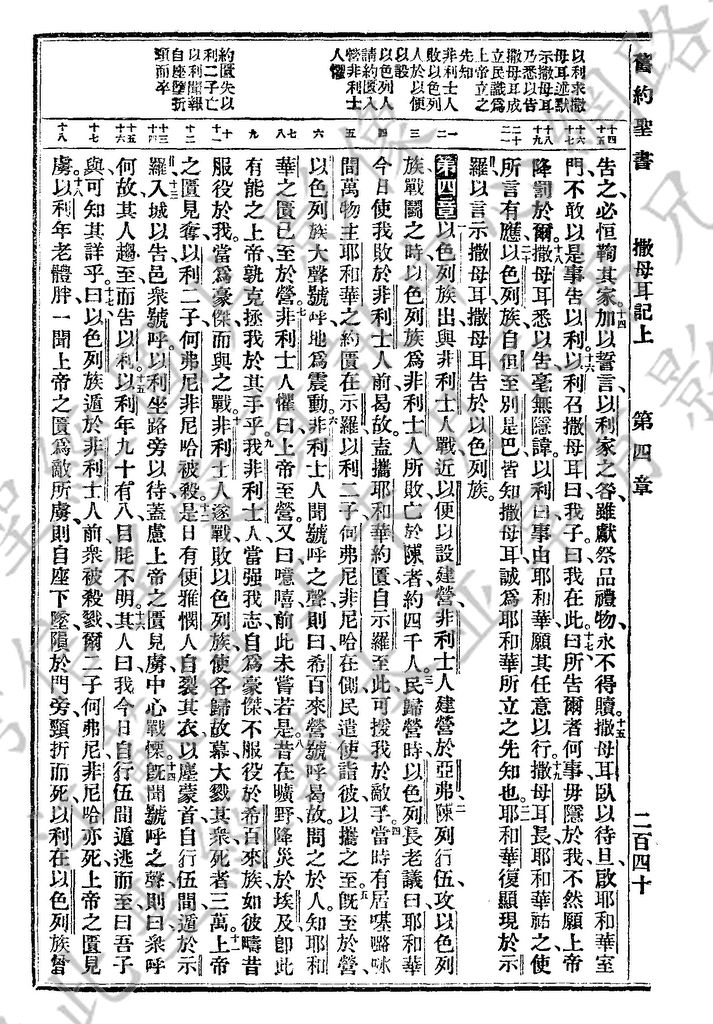 舊約聖書 撒母耳記上 第四章 二百四十
以利求撒
母耳述默
示撒母耳
乃悉以告
撒母耳成
立民識爲
上帝立之
先知
非利士人
敗以色列
人於以便
以設
以色列人
請約匱入
營非利士
人懼
約匱失以
利二子亡
以利聞報
自座墮折
頸而卒
告之必恒鞫其家、十四加以誓言、以利家之咎、雖獻祭品禮物、永不得贖、十五撒母耳臥以待旦、啟耶和華室
門、不敢以是事告以利、十六以利召撒母耳曰、我子、曰、我在此、十七曰、所告爾者何事、毋隱於我、不然、願上帝
降罰於爾、十八撒母耳悉以告、毫無隱諱、以利曰、事由耶和華、願其任意以行、十九撒母耳長、耶和華祐之、使
所言有應、二十以色列族、自但至別是巴、皆知撒母耳誠爲耶和華所立之先知也、二一耶和華復顯現於示
羅、以言示撒母耳、撒母耳告於以色列族、
第四章 以色列族出、與非利士人戰、近以便以設建營、非利士人建營於亞弗、二陳列行伍、攻以色列
族、戰鬭之時、以色列族爲非利士人所敗、亡於陳者約四千人、三民歸營時、以色列長老議曰、耶和華
今日使我敗於非利士人前、曷故、盍攜耶和華約匱、自示羅至此、可援我於敵手、四當時有居𠼻𡀔𠵽
間、萬物主耶和華之約匱在示羅、以利二子何弗尼非尼哈在側、民遣使詣彼以攜之至、五旣至於營、
以色列族大聲號呼、地爲震動、六非利士人聞號呼之聲、則曰、希百來營號呼曷故、問之於人、知耶和
華之匱已至於營、七非利士人懼、曰、上帝至營、又曰、噫嘻、前此未嘗若是、八昔在曠野降災於埃及、卽此
有能之上帝、孰克拯我於其手乎、九我非利士人當强我志、自爲豪傑、不服役於希百來族、如彼疇昔
服役於我、當爲豪傑而與之戰、十非利士人遂戰、敗以色列族、使各歸故幕、大戮其衆、死者三萬、十一上帝
之匱見奪、以利二子何弗尼非尼哈被殺、十二是日有便雅憫人、自裂其衣、以塵蒙首、自行伍間遁於示
羅、十三入城以告、邑衆號呼、以利坐路旁以待、蓋慮上帝之匱見虜、中心戰慄、十四旣聞號呼之聲、則曰、衆呼
何故、其人趨至而告以利、十五以利年九十有八、目眊不明、十六其人曰、我今日自行伍間遁逃而至、曰、吾子
與、可知其詳乎、十七曰、以色列族遁於非利士人前、衆被殺戮、爾二子何弗尼非尼哈亦死、上帝之匱見
虜、十八以利年老體胖、一聞上帝之匱爲敵所虜、則自座下墜、隕於門旁、頸折而死、以利在以色列族嘗